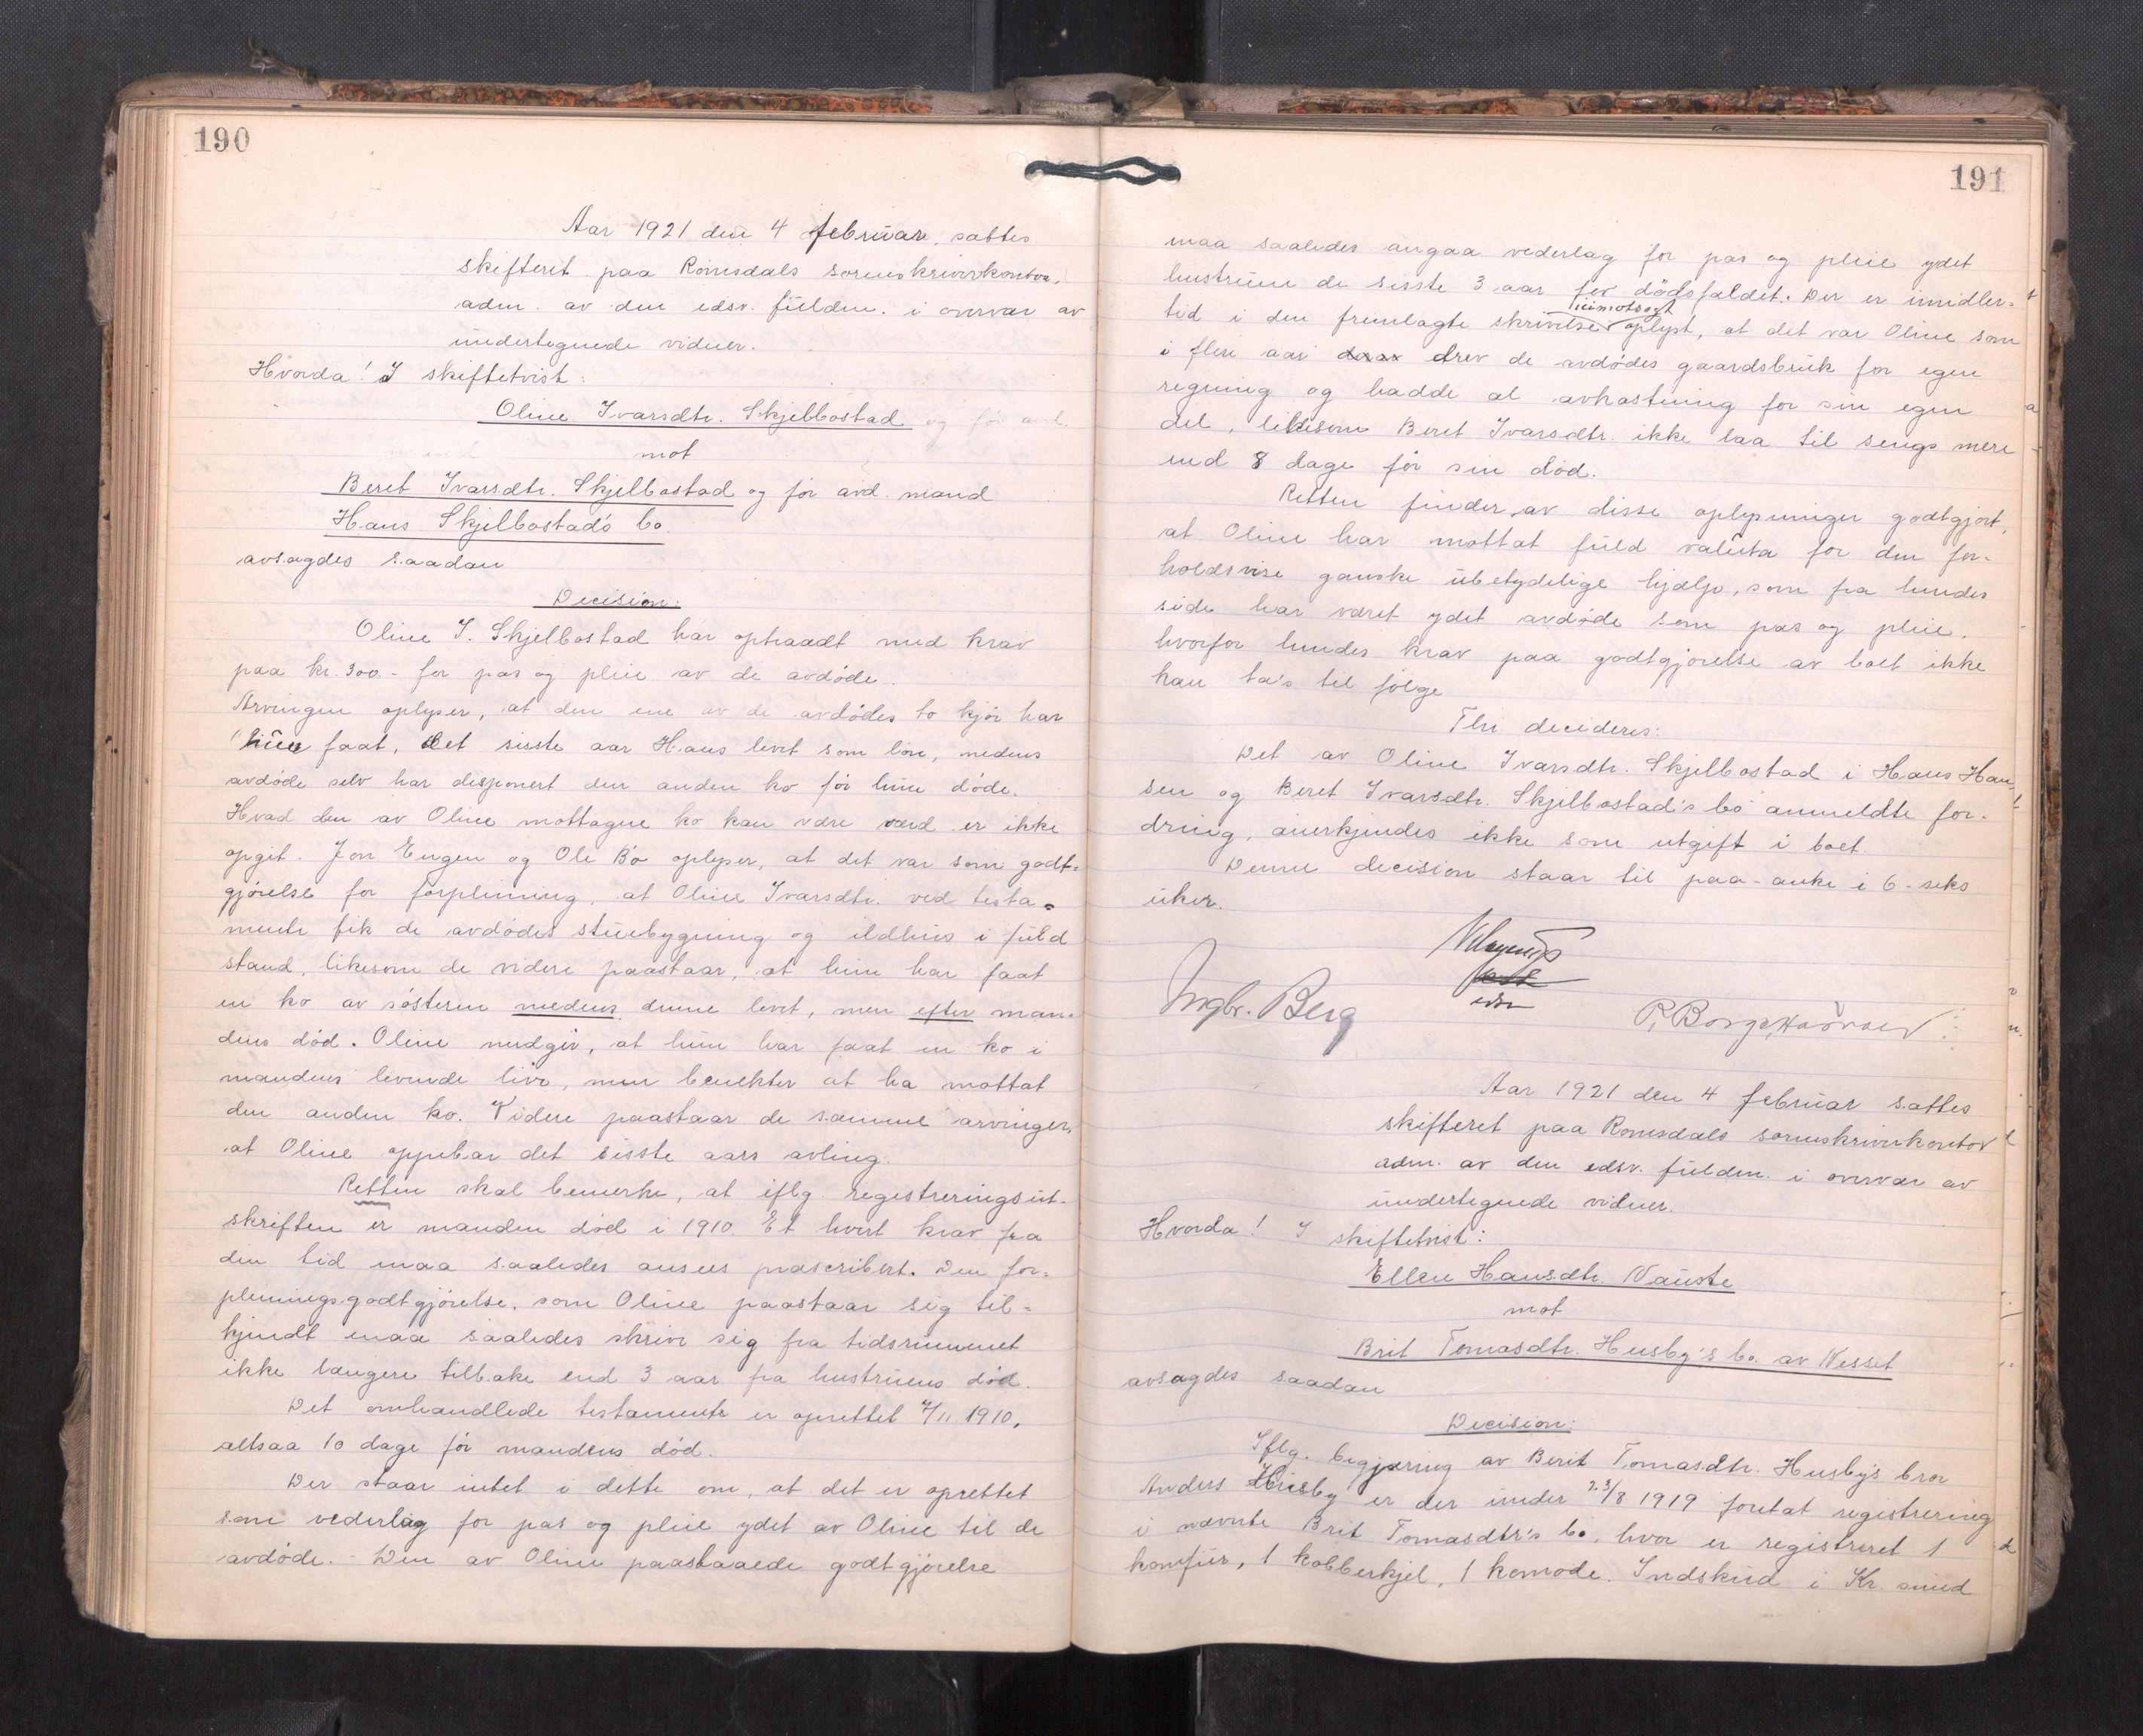 190
Aar 1921 den 4 februar sattes
skifteret paa Romsdals sorenskriverkontor,
adm. av den edsv. fuldm. i overvær av
undertegnede vidner.
Hvorda! I skiftetvist:
Oline Ivarsdtr. Skjelbostad
mot
Beret Ivarsdtr. Skjelbostad og før avd. mand
Hans Skjelbostad's bo
avsagdes saadan
Decision:
Oline I. Skjelbostad har optraadt med krav
paa kr. 300.- for pas og pleie av de avdøde.
Arvingen oplyser, at den ene av de avdødes to kjør har
hun faat, det sisste aar Hans levet som løn, medens
avdøde selv har disponert den anden ko før hun døde.
Hvad den av Oline mottagne ko kan være værd er ikke
opgit. Jon Engen og Ole Bø oplyser, at det var som godt-
gjørelse for forpleining, at Oline Ivarsdtr. ved testa-
mente fik de avdødes stuebygning og ildhus i fuld
stand, likesom de videre paastaar, at hun har faat
en ko av søsteren medens denne levet, men efter man-
dens død. Oline medgir, at hun har faat en ko i
mandens levende live, men benekter at ha mottat
den anden ko. Videre paastaar de samme arvinger,
at Oline oppebar det sisste aars avling.
Retten skal bemerke, at iflg. registreringsut-
skriften er manden død i 1910. Et hvert krav fra
den tid maa saaledes ansees præscribert. Den for-
pleiningsgodtgjørelse, som Oline paastaar sig til-
kjendt maa saaledes skrive sig fra tidsrummet
ikke længere tilbake end 3 aar fra hustruens død.
Det omhandlede testamente er oprettet 4/11 1910,
altsaa 10 dage før mandens død.
Der staar intet i dette om, at det er oprettet
som vederlag for pas og pleie ydet av Oline til de
avdøde. - Den av Oline paastaaede godtgjørelse
191
maa saaledes angaa vederlag for pas og pleie ydet
hustruen de sisste 3 aar før dødsfaldet. Der er imidler-
tid i den fremlagte skrivelse uimotsagt oplyst, at det var Oline som
i flere aar drev de avdødes gaardsbruk for egen
regning og hadde al avkastning for sin egen
del, likesom Beret Ivarsdtr. ikke laa til sengs mere
end 8 dage før sin død.
Retten finder av disse oplysninger godtgjort,
at Oline har mottat fuld valuta for den for-
holdsvise ganske ubetydelige hjælp, som fra hendes
side har været ydet avdøde som pas og pleie,
hvorfor hendes krav paa godtgjørelse av boet ikke
kan ta's til følge
Thi decideres:
Det av Oline Ivarsdtr. Skjelbostad i Hans Han-
sen og Beret Ivarsdtr. Skjelbostad's bo anmeldte for-
dring, anerkjendes ikke som utgift i boet.
Denne decision staar til paa-anke i 6 - seks
uker.
edsv
Ingbr. Berg
Aar 1921 den 4 februar sattes
skifteret paa Romsdals sorenskriverkontor
adm. av den edsv. fuldm. i overvær av
undertegnede vidner.
Hvorda! I skiftetvist:
Ellen Hansdtr. Nauste
mot
Brit Tomasdtr. Husby's bo av Nesset
avsagdes saadan
Decision:
Iflg. begjæring av Berit Tomasdtr. Husby's bror
Anders Husby er der under 23/8 1919 foretat registrering
i nævnte Brit Tomasdtr's bo, hvor er registreret 1
komfur, 1 kobberkjel, 1 komode. Indskud i Kr. sund